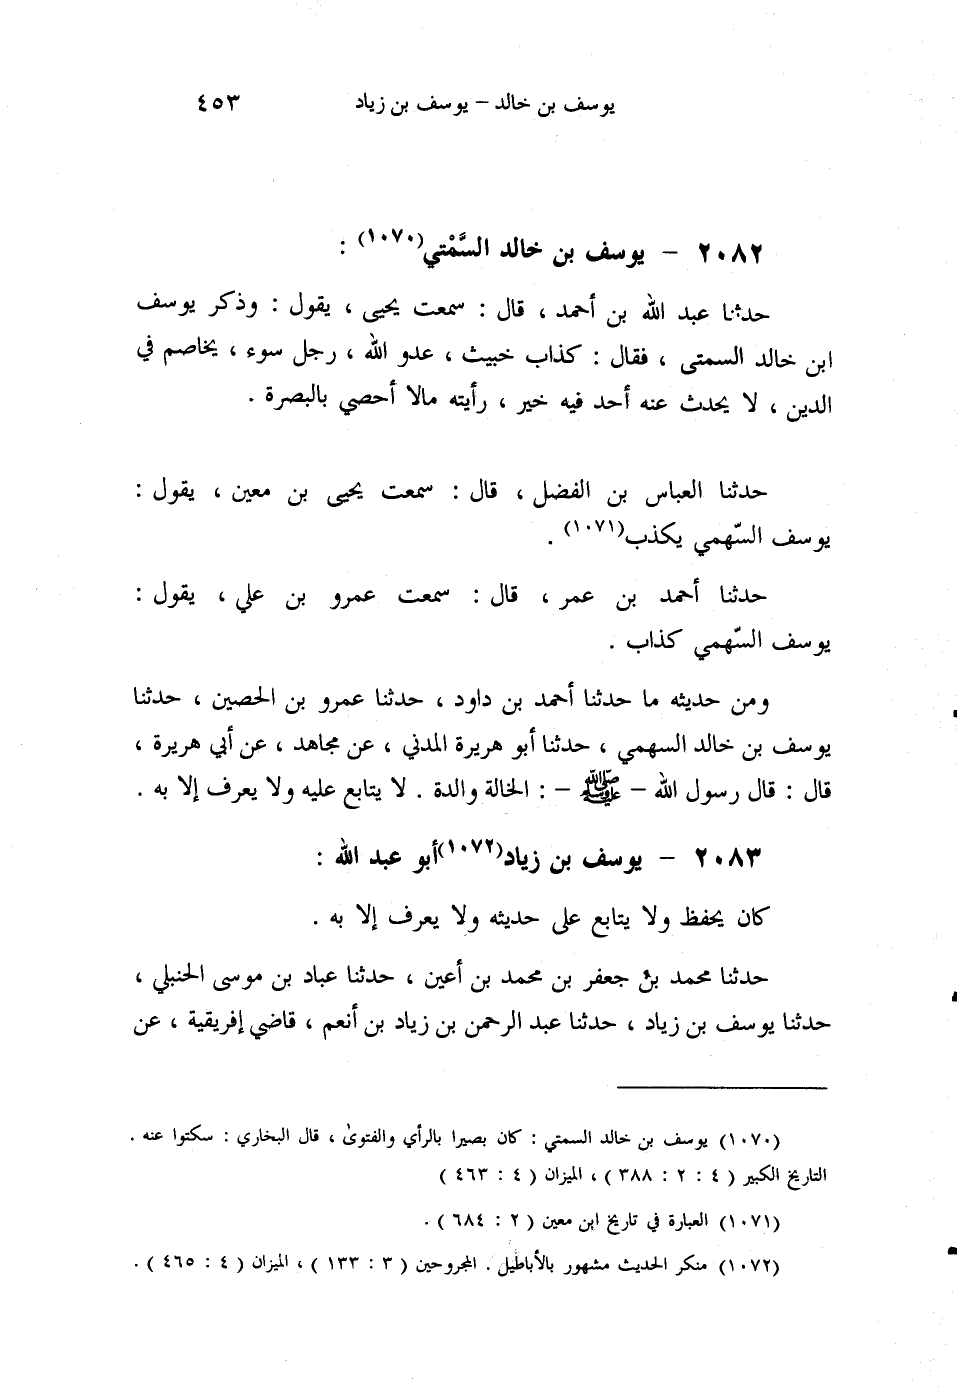 يوسف بن خالد – يوسف بن زياد ٤٥٣
٢٠٨٢ – يوسف بن خالد السَّمْتي(١٠٧٠) :
حدثنا عبد الله بن أحمد ، قال : سمعت يحيى ، يقول : وذكر يوسف
ابن خالد السمتى ، فقال : كذاب خبيث ، عدو الله ، رجل سوء ، يخاصم في
الدين ، لا يحدث عنه أحد فيه خير ، رأيته مالا أحصي بالبصرة .
حدثنا العباس بن الفضل ، قال : سمعت يحيى بن معين ، يقول :
يوسف السّهمي يكذب(١٠٧١) .
حدثنا أحمد بن عمر ، قال : سمعت عمرو بن علي ، يقول :
يوسف السّهمي كذاب .
ومن حديثه ما حدثنا أحمد بن داود ، حدثنا عمرو بن الحصين ، حدثنا
يوسف بن خالد السهمي ، حدثنا أبو هريرة المدني ، عن مجاهد ، عن أبي هريرة ،
قال : قال رسول الله – ﷺ – : الخالة والدة . لا يتابع عليه ولا يعرف إلا به .
٢٠٨٣ – يوسف بن زياد(١٠٧٢) أبو عبد الله :
كان يحفظ ولا يتابع على حديثه ولا يعرف إلا به .
حدثنا محمد بن جعفر بن محمد بن أعين ، حدثنا عباد بن موسى الحنبلي ،
حدثنا يوسف بن زياد ، حدثنا عبد الرحمن بن زياد بن أنعم ، قاضي إفريقية ، عن
(١٠٧٠) يوسف بن خالد السمتي : كان بصيرا بالرأي والفتوى ، قال البخاري : سكتوا عنه .
التاريخ الكبير ( ٤ : ٢ : ٣٨٨ ) ، الميزان ( ٤ : ٤٦٣ )
(١٠٧١) العبارة في تاريخ ابن معين ( ٢ : ٦٨٤ ) .
(١٠٧٢) منكر الحديث مشهور بالأباطيل . المجروحين ( ٣ : ١٣٣ ) ، الميزان ( ٤ : ٤٦٥ ) .